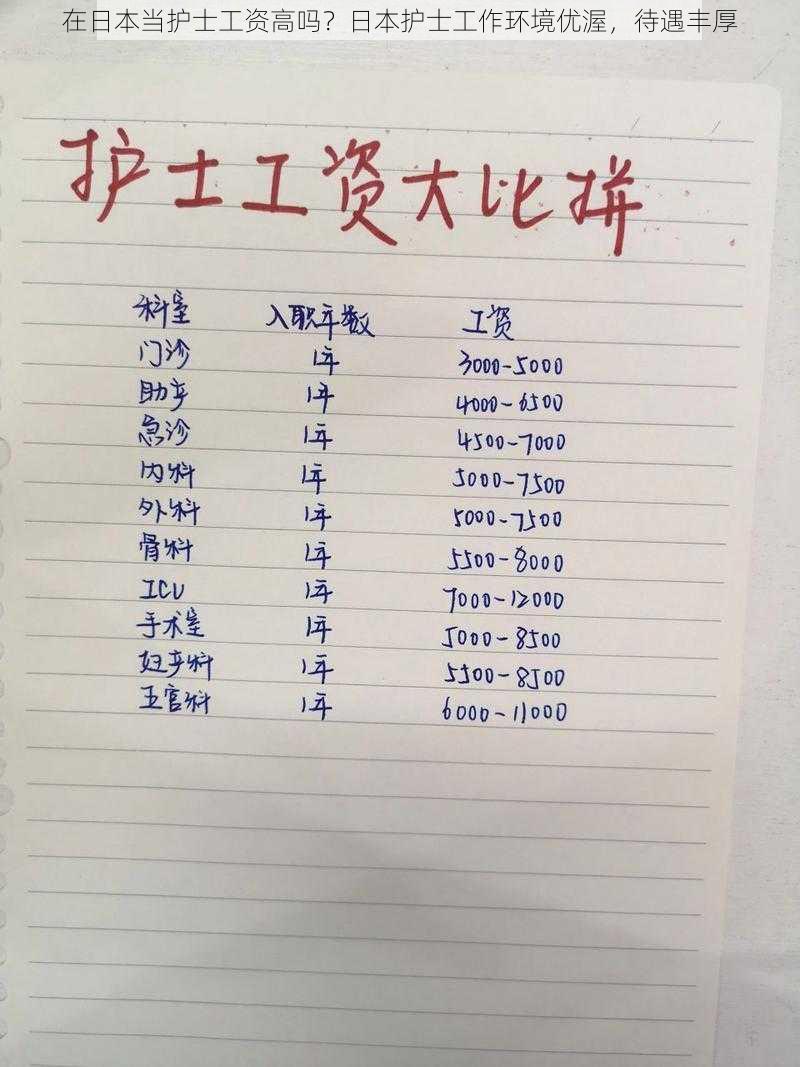 在日本当护士工资高吗？日本护士工作环境优渥，待遇丰厚
护士工资大比拼
科室 入职年数 工资
门诊 1年 3000-5000
助产 1年 4000-6500
急诊 1年 4500-7000
内科 1年 5000-7500
外科 1年 5000-7500
骨科 1年 5500-8000
ICU 1年 7000-12000
手术室 1年 5000-8500
妇产科 1年 5500-8500
五官科 1年 6000-11000